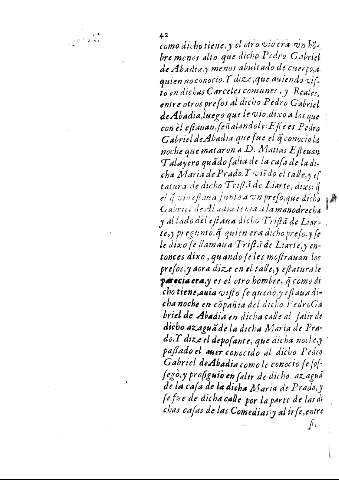 42
como dicho tiene, y el otro vio era vn hõ-
bre menos alto que dicho Pedro Gabriel
de Abadia, y menos abultado de cuerpo, a
quien no conocio. Y dize, que auiendo vis-
to en dichas Carceles comunes, y Reales,
entre otros presos al dicho Pedro Gabriel
de Abadia, luego que le vio, dixo a los que
con èl estauan, señalandole: Este es Pedro
Gabriel de Abadia que fue el q̃ conocio la
noche que mataron a D. Matias Esteuan
Talayero quãdo salia de la casa de la di-
cha Maria de Prado. Y viẽdo el talle, y es
tatura de dicho Tristã de Liarte, dixo: q̃
el q̃ vieſ junto a vn preso, que dicho
Gabriel de Abadia tenia a la mano drecha
y al lado del estaua dicho Tristã de Liar-
te, y pregunto, q̃ quien era dicho preso, y se
le dixo se llamaua Tristã de Liarte, y en-
tonces dixo, quando se les mostrauan los
presos, y aora dize en el talle, y estatura le
parecia era, y es el otro hombre, q̃ como di
cho tiene, auia visto se quedò, y estaua di-
cha noche en cõpañia del dicho Pedro Ga
briel de Abadia en dicha calle al salir de
dicho azaguã de la dicha Maria de Pra-
do. Y dize el deposante, que dicha noche, y
passado el auer conocido al dicho Pedro
Gabriel de Abadia como le conocio se sos-
segò, y prosiguio en salir de dicho azaguã
de la casa de la dicha Maria de Prado, y
se fue de dicha calle por la parte de las di
chas casas de las Comedias: y al irse, entre
si,